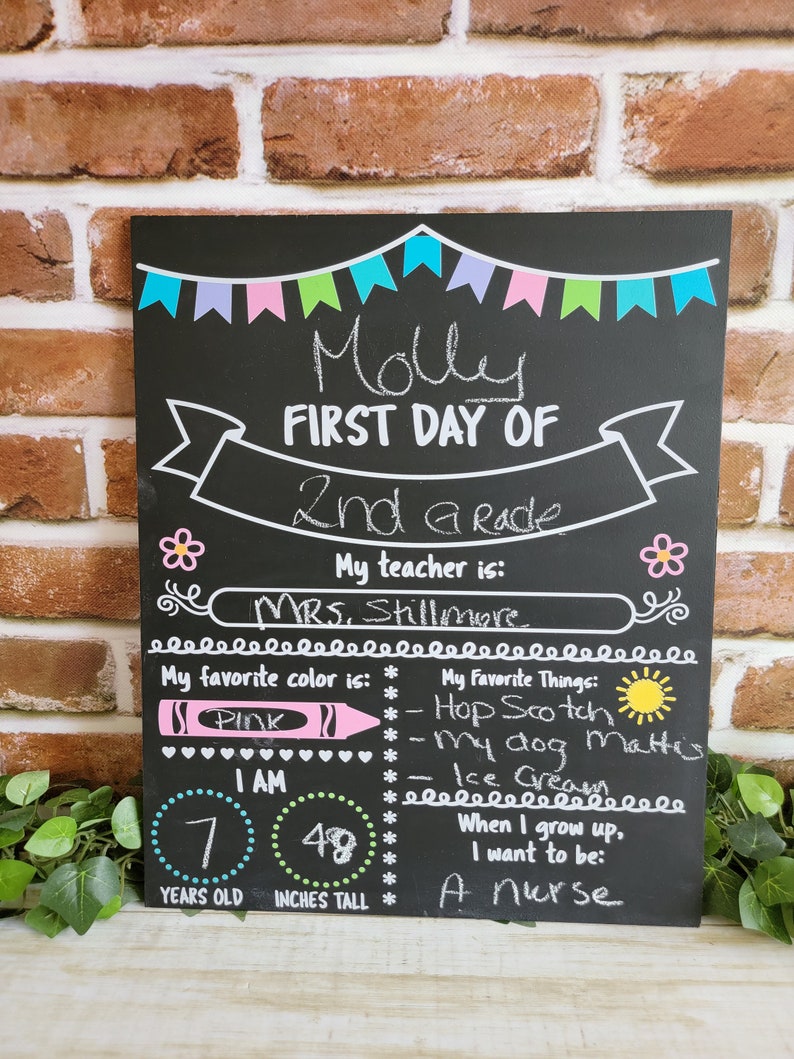 Molly
FIRST DAY OF
2nd Grade
My teacher is:
MRS. Stillmore
My favorite color is:
Pink
I AM
7
YEARS OLD
48
INCHES TALL
My Favorite Things:
- Hop Scotch
- My dog Mattis
- Ice Cream
When I grow up,
I want to be:
A nurse